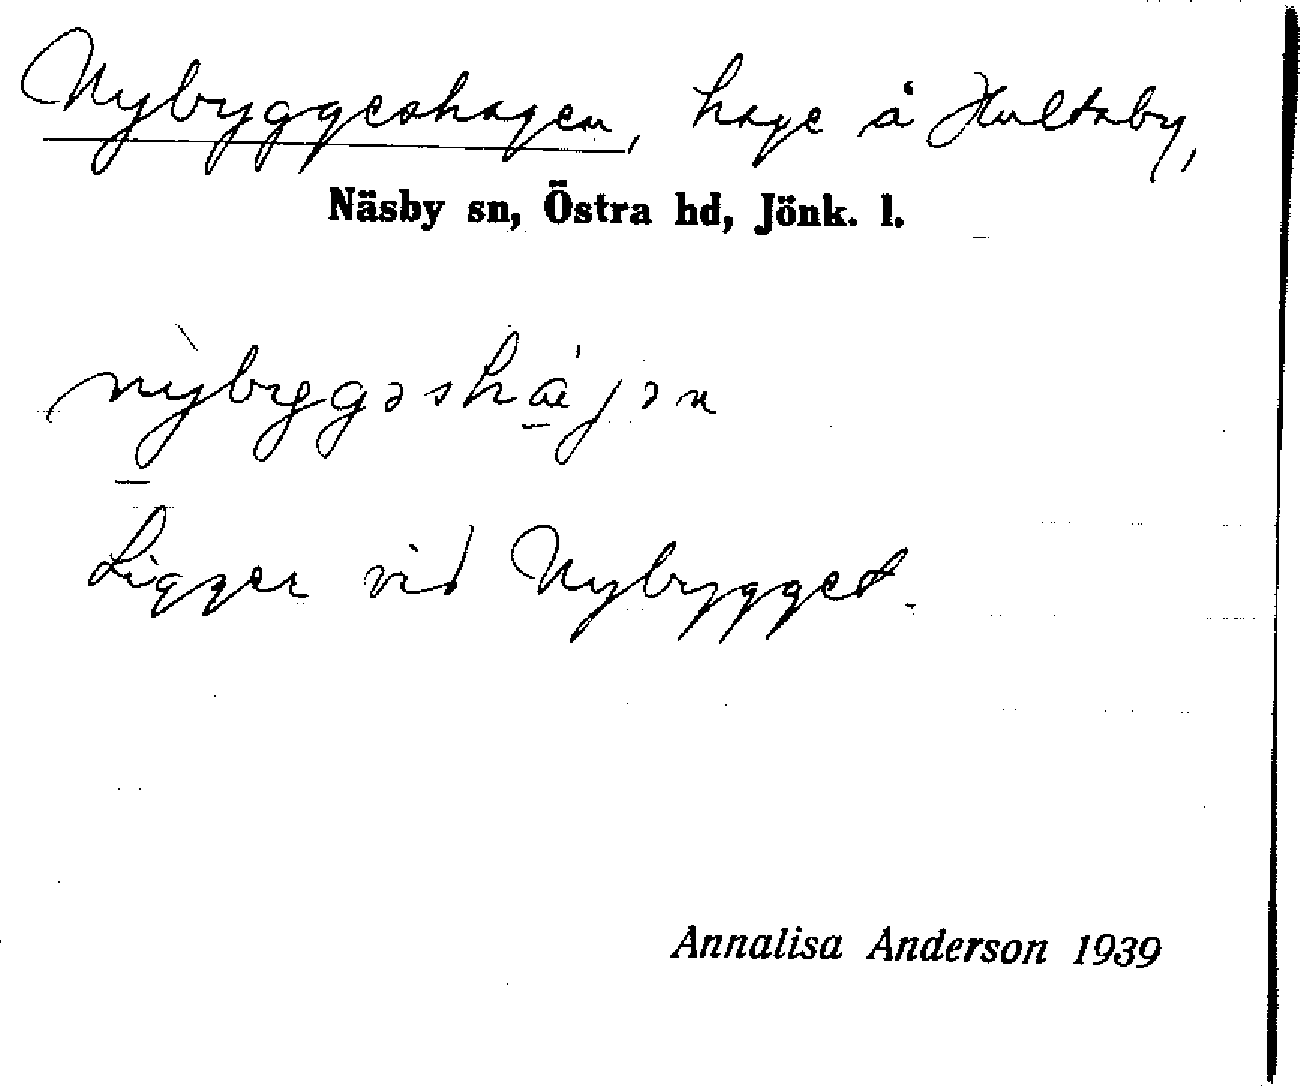 Nybyggeshagen, hage å Hultaby,
Näsby sn, Östra hd, Jönk. l.
Ligger vid Nybygget.
Annalisa Anderson 1939